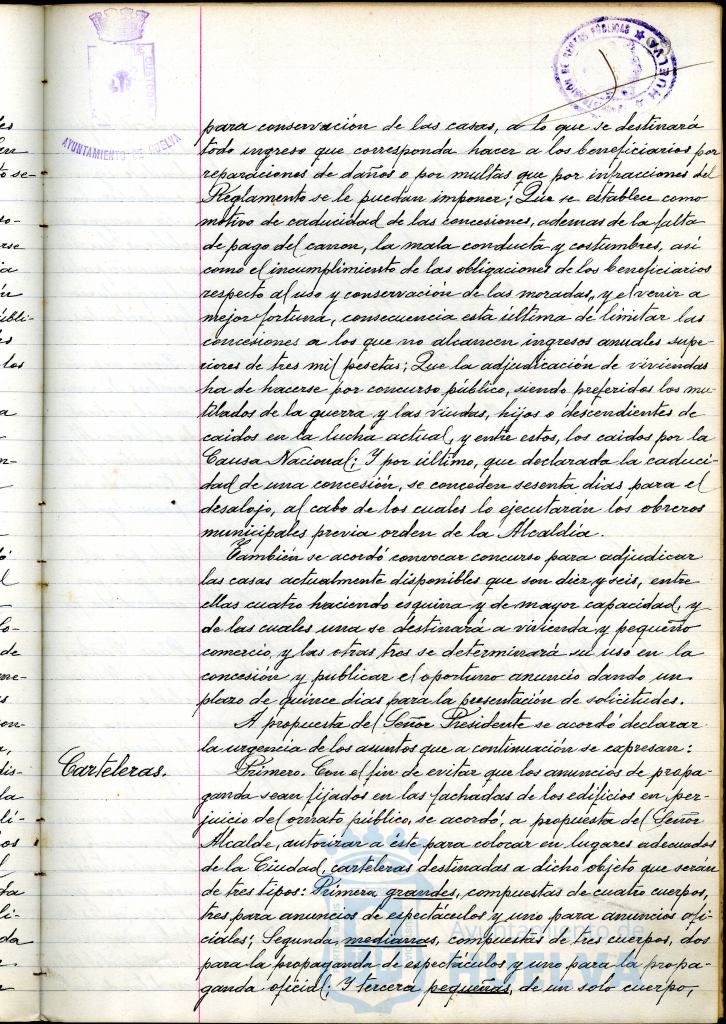 AYUNTAMIENTO DE HUELVA
para conservación de las casas, a lo que se destinará
todo ingreso que corresponda hacer a los beneficiarios por
reparaciones de daños o por multas que por infracciones del
Reglamento se le puedan imponer; Que se establece como
motivo de caducidad de las concesiones, ademas de la falta
de pago del canon, la mala conducta y costumbres, así
como el incumplimiento de las obligaciones de los beneficiarios
respecto al uso y conservación de las moradas, y el venir a
mejor fortuna, consecuencia esta última de limitar las
concesiones a los que no alcancen ingresos anuales supe-
riores de tres mil pesetas; Que la adjudicación de viviendas
ha de hacerse por concurso público, siendo preferidos los mu-
tilados de la guerra y las viudas, hijos o descendientes de
caidos en la lucha actual, y entre estos, los caidos por la
Causa Nacional; Y por último, que declarada la caduci-
dad de una concesión, se conceden sesenta dias para el
desalojo, al cabo de los cuales lo ejecutarán los obreros
municipales previa orden de la Alcaldía.
También se acordó convocar concurso para adjudicar
las casas actualmente disponibles que son diez y seis, entre
ellas cuatro haciendo esquina y de mayor capacidad, y
de las cuales una se destinará a vivienda y pequeño
comercio, y las otras tres se determinará su uso en la
concesión y publicar el oportuno anuncio dando un
plazo de quince dias para la presentación de solicitudes.
A propuesta del Señor Presidente se acordó declarar
la urgencia de los asuntos que a continuación se expresan:
Carteleras.
Primero. Con el fin de evitar que los anuncios de propa-
ganda sean fijados en las fachadas de los edificios en per-
juicio del ornato público, se acordó, a propuesta del Señor
Alcalde, autorizar a éste para colocar en lugares adecuados
de la Ciudad, carteleras destinadas a dicho objeto que serán
de tres tipos: Primera grandes, compuestas de cuatro cuerpos,
tres para anuncios de espectáculos y uno para anuncios ofi-
ciales; Segunda, medianas, compuestas de tres cuerpos, dos
para la propaganda de espectáculos y uno para la propa-
ganda oficial; Y tercera pequeñas, de un solo cuerpo,
Ayuntamiento de
HUELVA